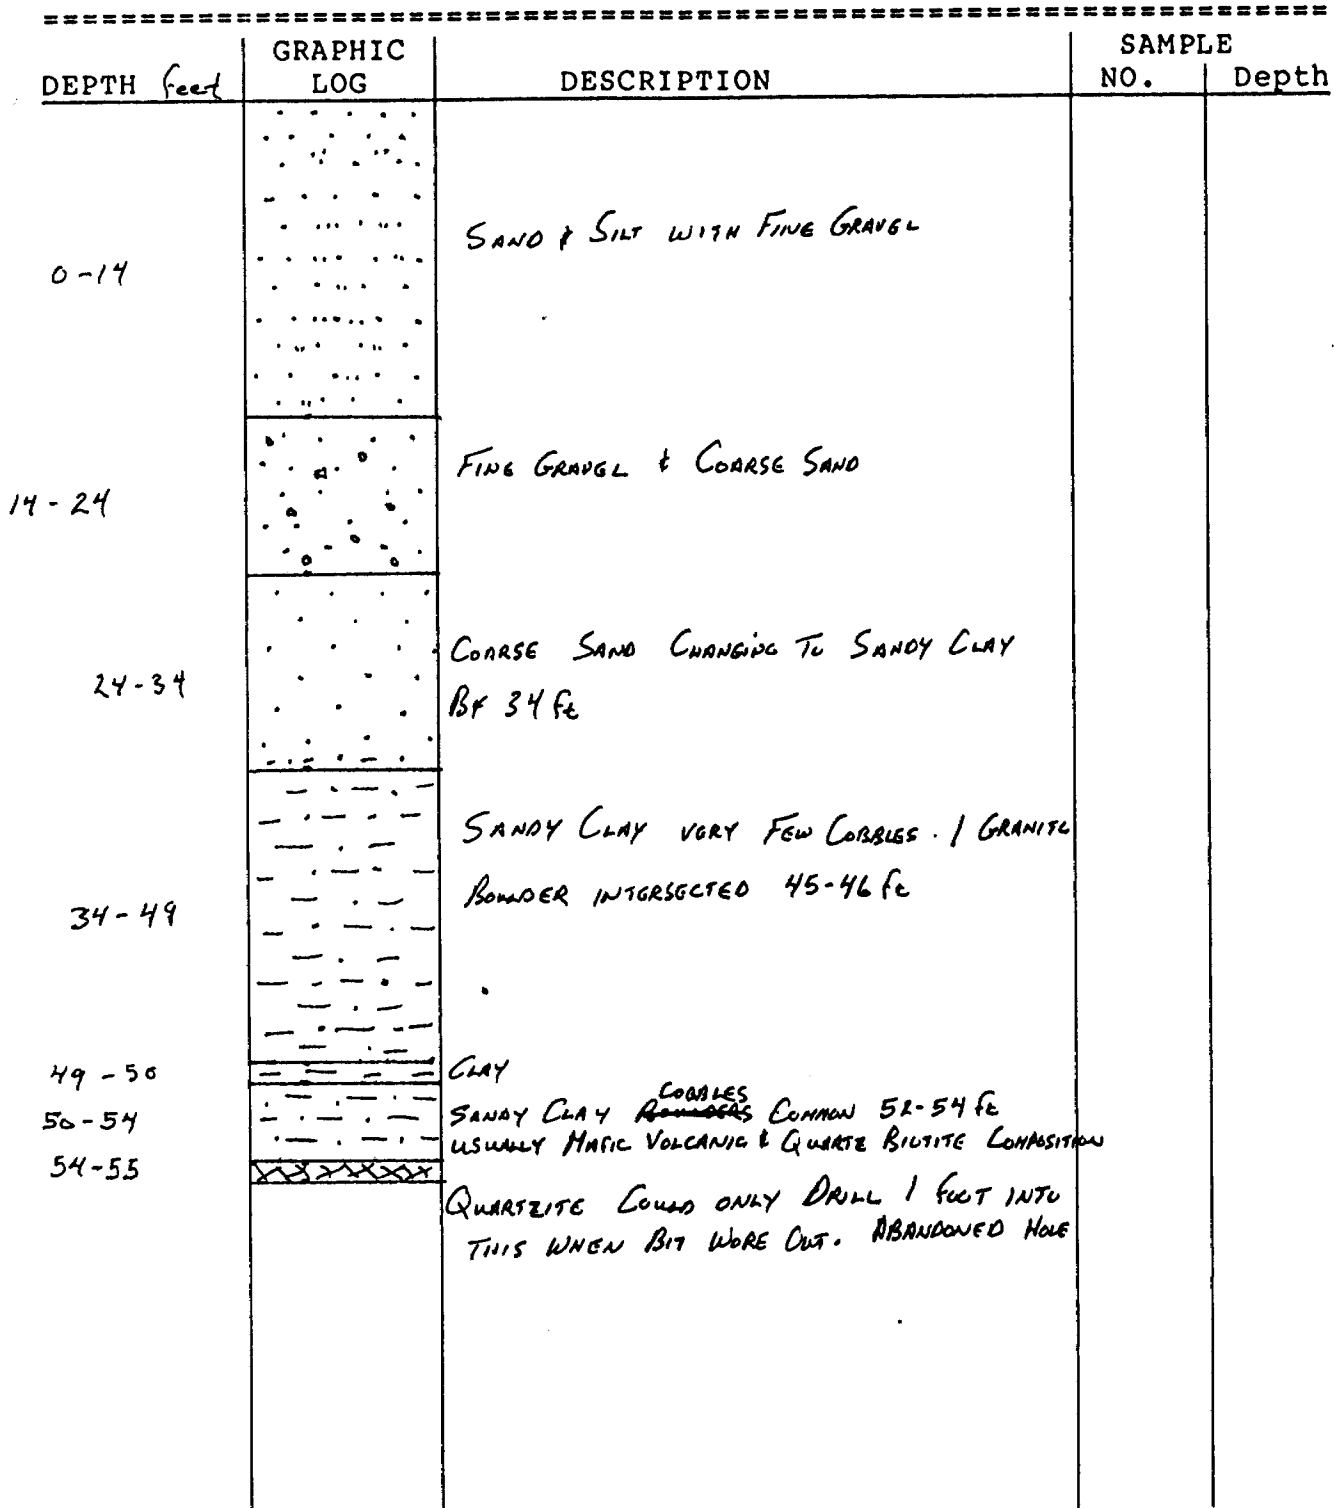 GRAPHIC SAMPLE
DEPTH feet LOG DESCRIPTION NO. Depth
0-14 SAND & SILT WITH FINE GRAVEL
14-24 FINE GRAVEL & COARSE SAND
24-34 COARSE SAND CHANGING TO SANDY CLAY
BY 34 ft
34-49 SANDY CLAY VERY FEW COBBLES. 1 GRANITE
BOULDER INTERSECTED 45-46 ft
49-50 CLAY
COBBLES
50-54 SANDY CLAY BOULDERS COMMON 52-54 ft
USUALLY MAFIC VOLCANIC & QUARTZ BIOTITE COMPOSITION
54-55
QUARTZITE COULD ONLY DRILL 1 FOOT INTO
THIS WHEN BIT WORE OUT. ABANDONED HOLE